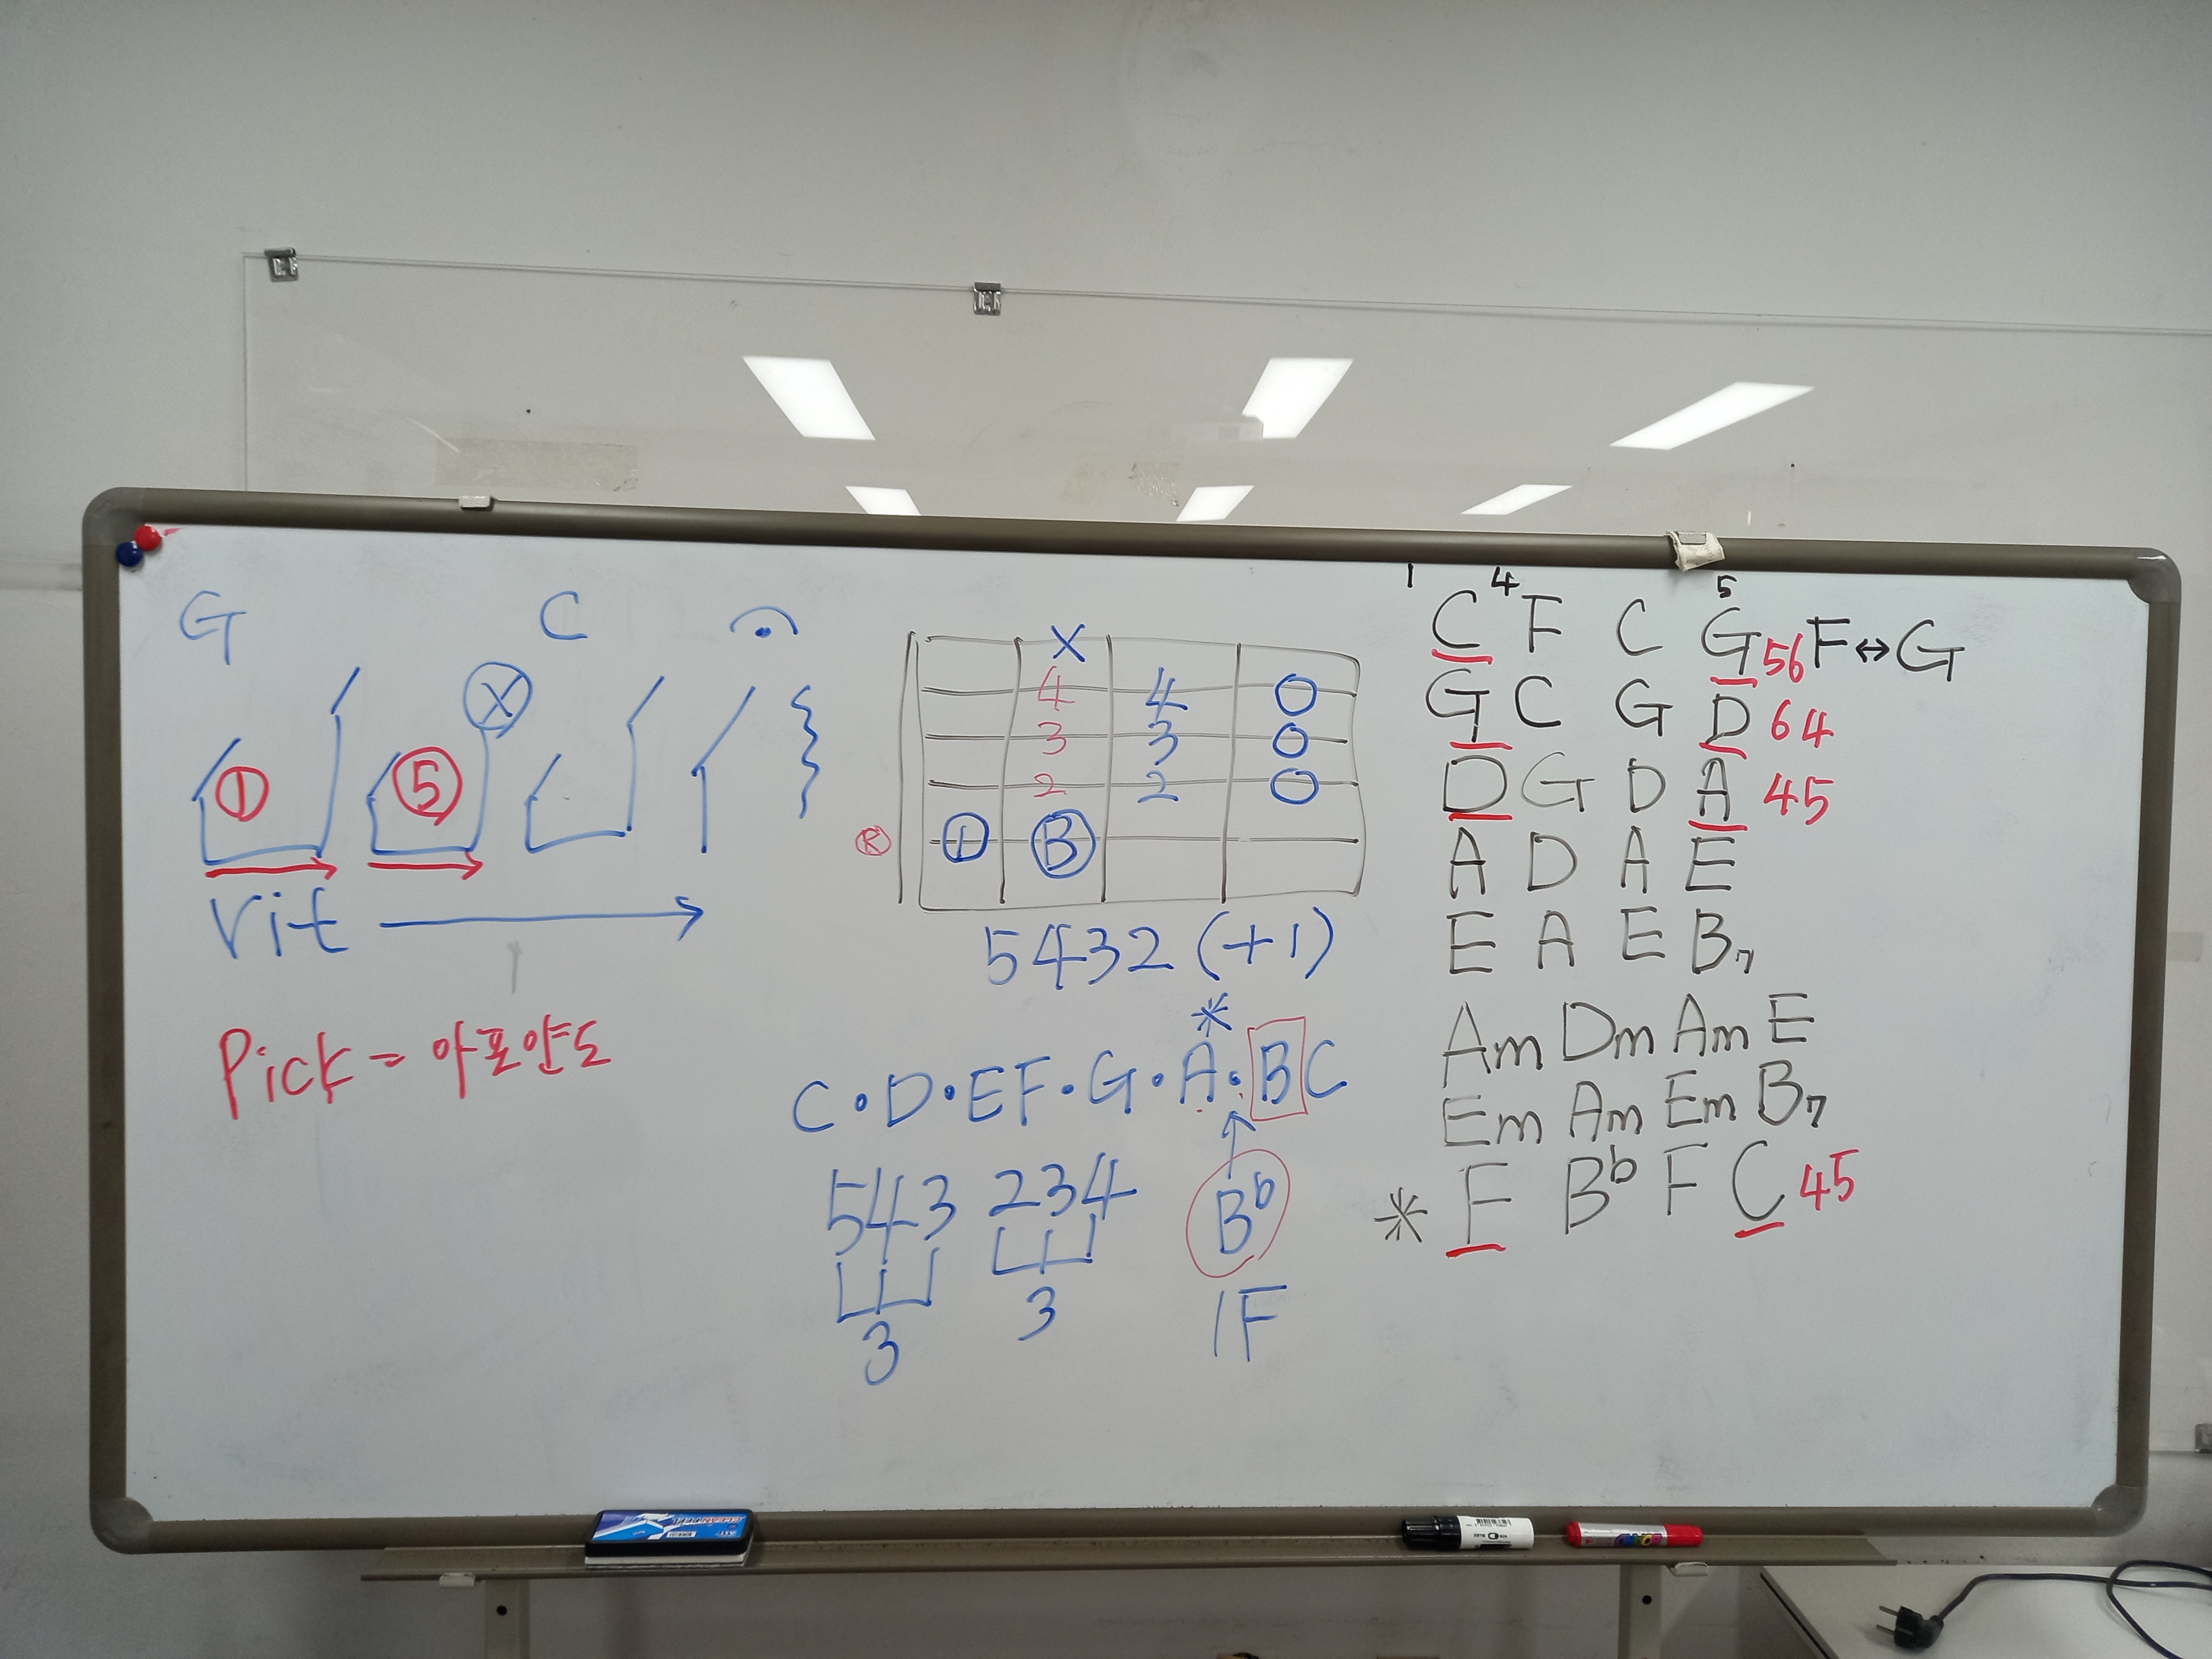 G C
① ⑤ X
rit →
Pick = 아포얀도
X
4 4 O
3 3 O
2 2 O
Ⓡ ① Ⓑ
5432 (+1)
*
C・D・EF・G・A・BC
543 234 Bb
3 3 1F
1 4 5
C F C G 56 F↔G
G C G D 64
D G D A 45
A D A E
E A E B7
Am Dm Am E
Em Am Em B7
* F Bb F C 45